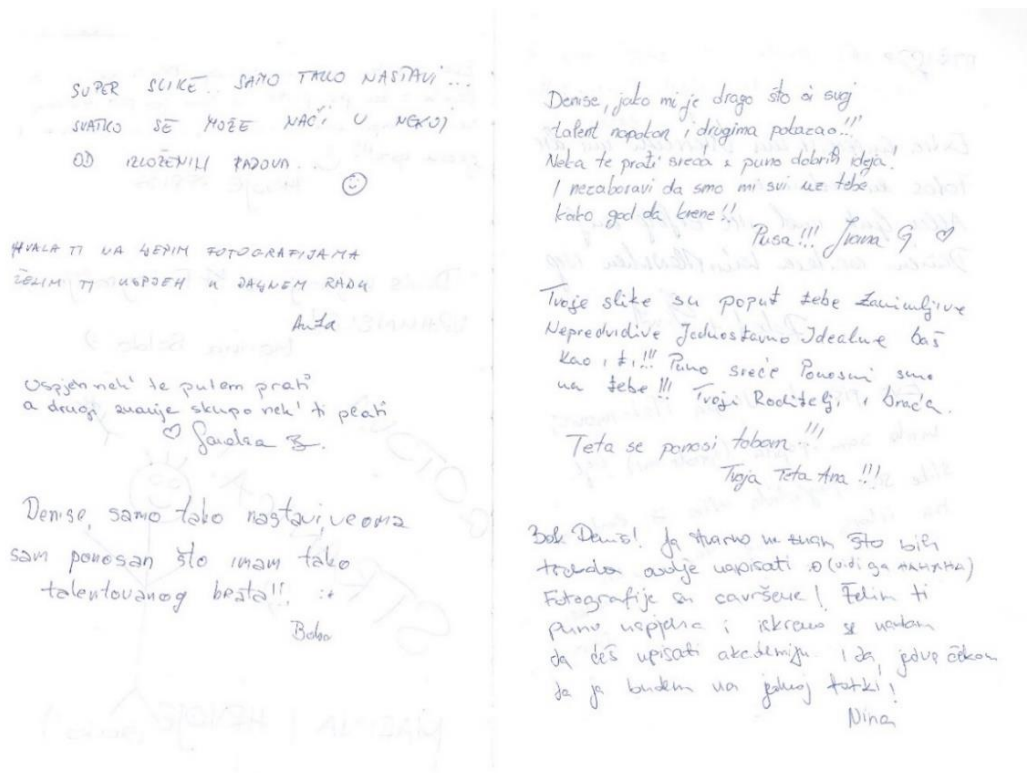 SUPER SLIKE.. SAMO TAKO NASTAVI...
SVATKO SE MOŽE NAĆI U NEKOJ
OD IZLOŽENIH RADOVA. ☺
HVALA TI NA LJEPIM FOTOGRAFIJAMA
ŽELIM TI USPJEH U DALJNEM RADU
Anita
Uspjeh nek' te putem prati
a drugi znanje skupo nek' ti plati
♡ Sandra
Denise, samo tako nastavi, veoma
sam ponosan što imam tako
talentovanog brata!!! :*
Denise, jako mi je drago što si svoj
talent napokon i drugima pokazao!!!
Neka te prati sreća i puno dobrih ideja!
I nezaboravi da smo mi svi uz tebe
kako god da krene!!
Pusa!!! Ivana G ♡
Tvoje slike su poput tebe Zanimljive
Nepredvidive Jednostavno Idealne baš
kao i ti!!! Puno sreće Ponosni smo
na tebe!!! Tvoji Roditelji i braća.
Teta se ponosi tobom!!!
Tvoja Teta Ana!!!
Bok Denis! Ja stvarno ne znam što bih
trebala ovdje napisati :o (vidi ga HAHAHA)
Fotografije su savršene! Želim ti
puno uspjeha i iskreno se nadam
da ćeš upisati akademiju i da jedva čekam
da ja budem na jednoj
Nina